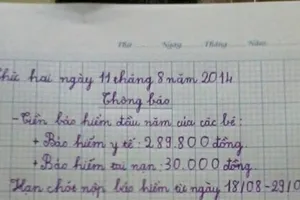 Thứ .......... Ngày .......... Tháng .......... Năm
Thứ hai ngày 11 tháng 8 năm 2014
Thông báo
- Tiền bảo hiểm đầu năm của các bé:
+ Bảo hiểm y tế: 289.800 đồng
+ Bảo hiểm tai nạn: 30.000 đồng.
Hạn chót nộp bảo hiểm từ ngày 18/08-29/0